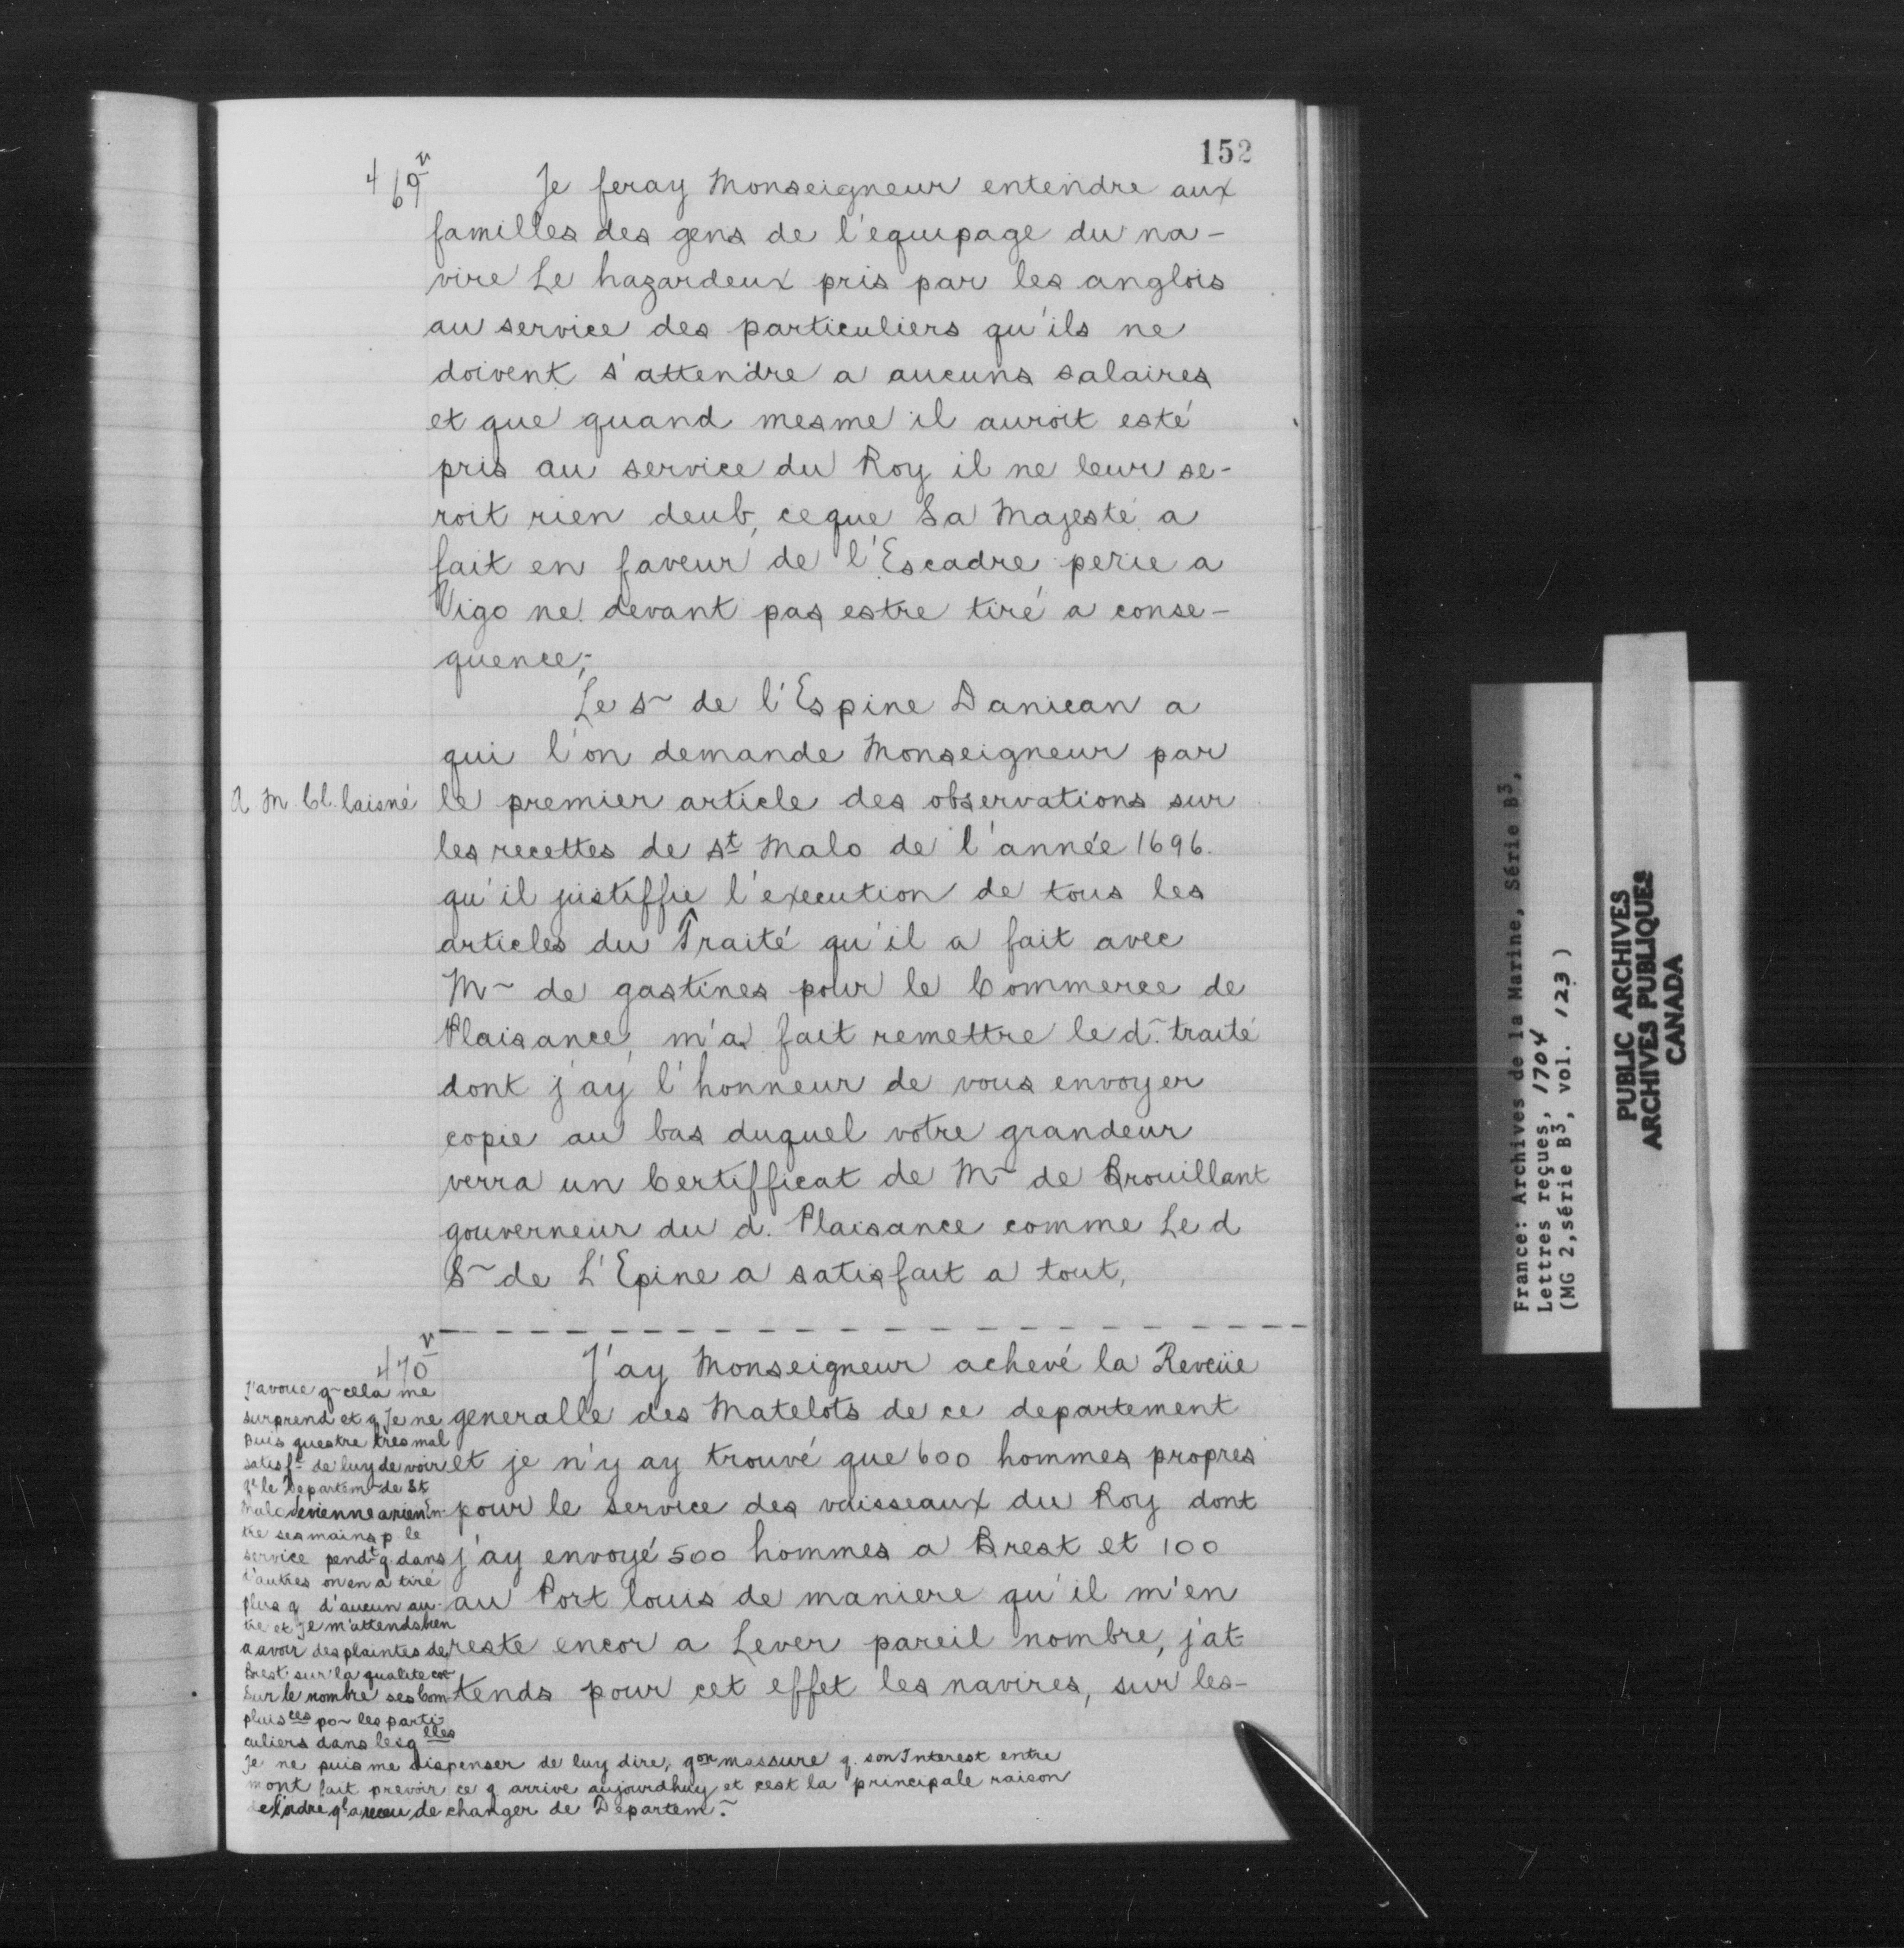 152
469v
Je feray Monseigneur entendre aux
familles des gens de l'equipage du na-
vire Le hazardeux pris par les anglois
au service des particuliers qu'ils ne
doivent s'attendre a aucuns salaires
et que quand mesme il auroit esté
pris au service du Roy il ne leur se-
roit rien deub, ceque Sa Majesté a
fait en faveur de l'Escadre perie a
Vigo ne devant pas estre tiré a conse-
quence;-
Le Sr de l'Espine Danican a
qui l'on demande Monseigneur par
A M. Cl. laisné
le premier article des observations sur
les recettes de St Malo de l'année 1696.
qu'il justiffie l'execution de tous les
articles du Traité qu'il a fait avec
Mr de gastines pour le Commerce de
Plaisance, m'a fait remettre le d. traité
dont j'ay l'honneur de vous envoyer
copie au bas duquel votre grandeur
verra un Certifficat de Mr de Brouillant
gouverneur du d. Plaisance comme Le d
Sr de L'Epine a satisfait a tout,
470v
J'ay Monseigneur achevé la Reveüe
generalle des Matelots de ce departement
et je n'y ay trouvé que 600 hommes propres
pour le service des vaisseaux du Roy dont
j'ay envoyé 500 hommes a Brest et 100
au Port louis de maniere qu'il m'en
reste encor a Lever pareil nombre, j'at-
tends pour cet effet les navires, sur les-
J'avoue q cela me
surprend et q Je ne
Puis questre tres mal
satisft de luy de voir
qe le Departemt de St
Malo devienne a rien En-
tre ses mains p le
service pendt q. dans
d'autres on en a tiré
plus q d'aucun au-
tre et Je m'attends bien
a avoir des plaintes de
Brest sur la qualite coe
Sur le nombre ses Com-
plaisces por les parti-
culiers dans lesqlles
Je ne puis me dispenser de luy dire, qon massure q. son Interest entre
mont fait prevoir ce q arrive aujourdhuy et cest la principale raison
de l'ordre ql a receu de changer de Departem.
France: Archives de la Marine, Série B3,
Lettres reçues, 1704
(MG 2, série B3, vol. 123 )
PUBLIC ARCHIVES
ARCHIVES PUBLIQUES
CANADA